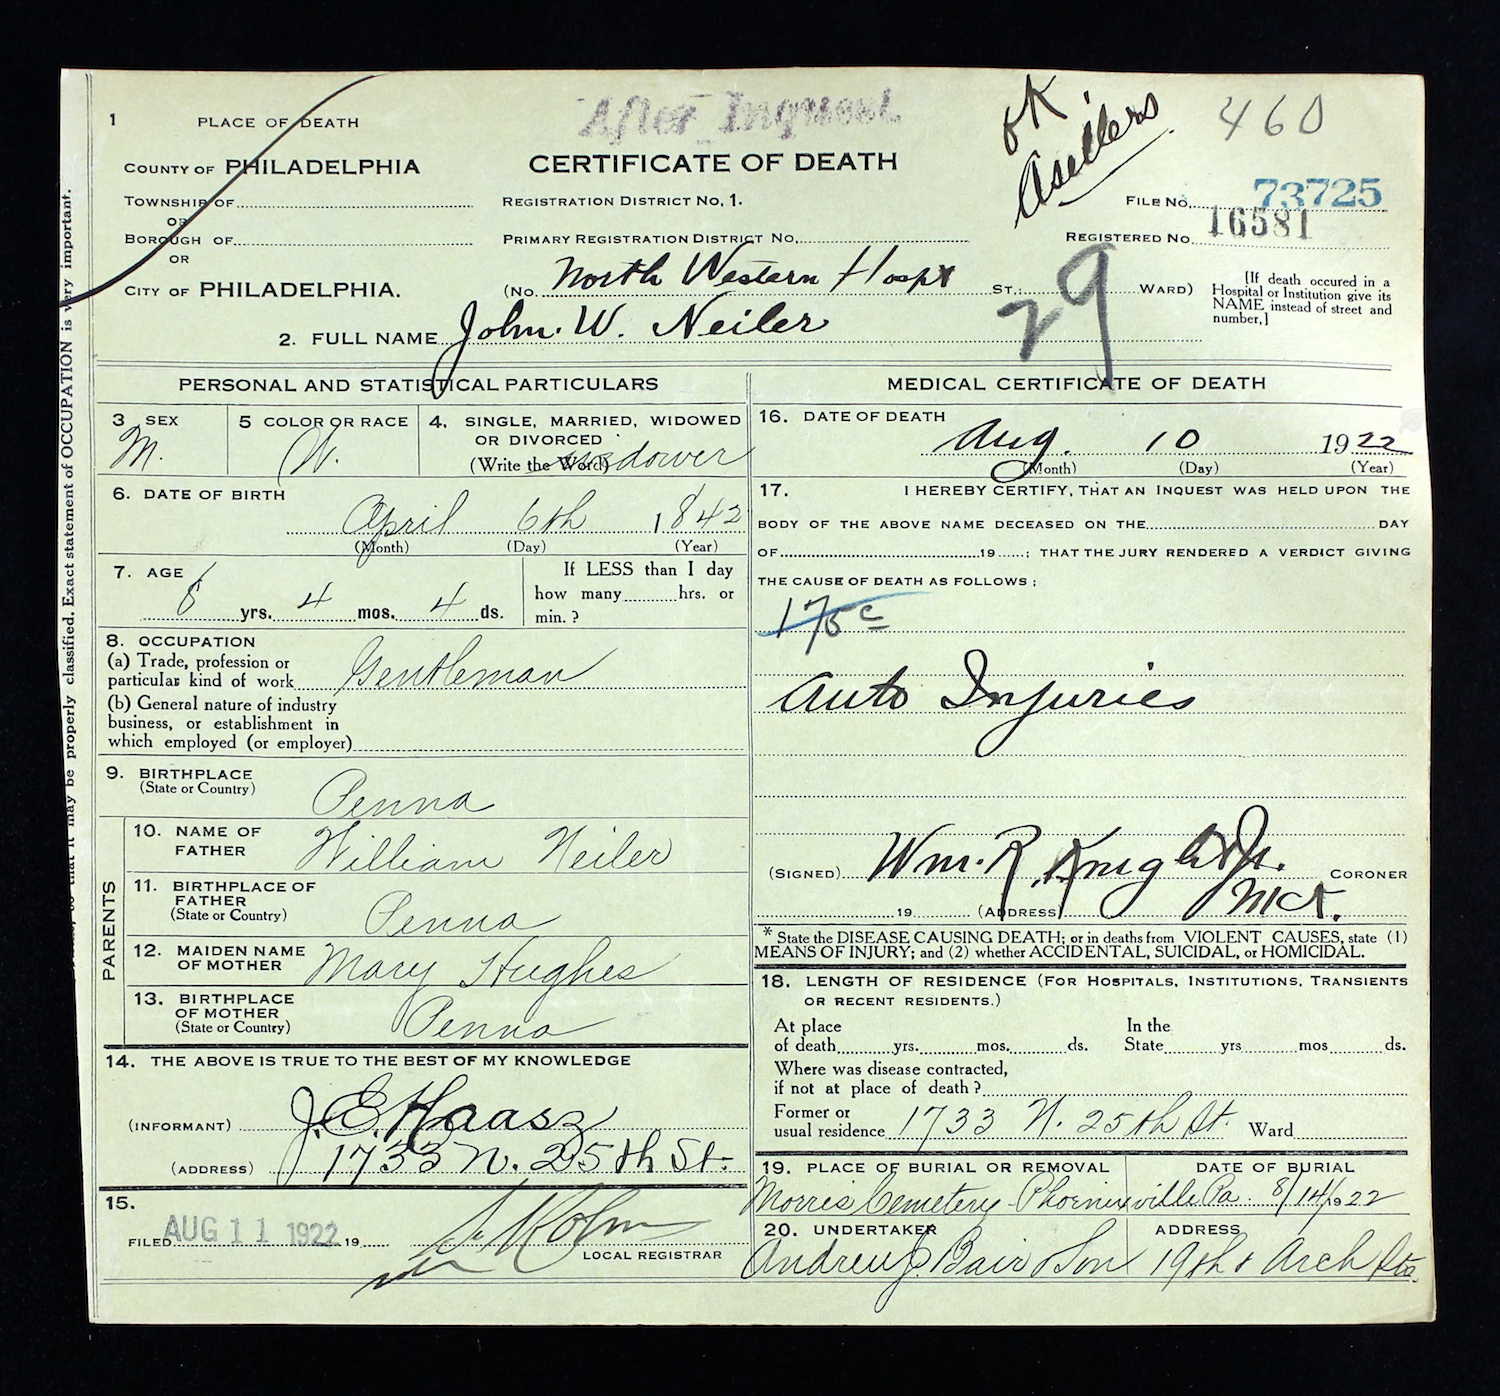 After Inquest
OK
460
1 PLACE OF DEATH
COUNTY OF PHILADELPHIA
CERTIFICATE OF DEATH
TOWNSHIP OF
REGISTRATION DISTRICT No. 1.
FILE No. 73725
OR
BOROUGH OF
PRIMARY REGISTRATION DISTRICT No.
REGISTERED No. 16581
OR
CITY OF PHILADELPHIA.
(No. North Western Hospt ST.; WARD)
29
[If death occured in a
Hospital or Institution give its
NAME, instead of street and
number.]
2. FULL NAME John. W. Neiler
PERSONAL AND STATISTICAL PARTICULARS
3 SEX
M.
5 COLOR OR RACE
W.
4. SINGLE, MARRIED, WIDOWED
OR DIVORCED
(Write the Word) widower
6. DATE OF BIRTH
April 6th 1842
(Month) (Day) (Year)
7. AGE
8 yrs. 4 mos. 4 ds.
If LESS than 1 day
how many hrs. or
min.?
8. OCCUPATION
(a) Trade, profession or
particular kind of work Gentleman
(b) General nature of industry
business, or establishment in
which employed (or employer)
9. BIRTHPLACE
(State or Country) Penna
PARENTS
10. NAME OF
FATHER William Neiler
11. BIRTHPLACE OF
FATHER
(State or Country) Penna
12. MAIDEN NAME
OF MOTHER Mary Hughes
13. BIRTHPLACE
OF MOTHER
(State or Country) Penna
14. THE ABOVE IS TRUE TO THE BEST OF MY KNOWLEDGE
(INFORMANT) J. E. Haasz
(ADDRESS) 1733 N. 25th St.
15.
FILED AUG 11 1922 19
LOCAL REGISTRAR
MEDICAL CERTIFICATE OF DEATH
16. DATE OF DEATH
Aug. 10 1922
(Month) (Day) (Year)
17. I HEREBY CERTIFY, THAT AN INQUEST WAS HELD UPON THE
BODY OF THE ABOVE NAME DECEASED ON THE DAY
OF 19 ; THAT THE JURY RENDERED A VERDICT GIVING
THE CAUSE OF DEATH AS FOLLOWS:
175c
Auto Injuries
(SIGNED) Wm. R. Knight Jr. CORONER
19 (ADDRESS)
* State the DISEASE CAUSING DEATH; or in deaths from VIOLENT CAUSES, state (1)
MEANS OF INJURY; and (2) whether ACCIDENTAL, SUICIDAL, or HOMICIDAL.
18. LENGTH OF RESIDENCE (FOR HOSPITALS, INSTITUTIONS, TRANSIENTS
OR RECENT RESIDENTS.)
At place In the
of death yrs. mos. ds. State yrs mos ds.
Where was disease contracted,
if not at place of death?
Former or
usual residence 1733 N. 25th St. Ward
19. PLACE OF BURIAL OR REMOVAL DATE OF BURIAL
Morris Cemetery Phoenixville Pa. 8/14/1922
20. UNDERTAKER ADDRESS
Andrew J. Bair & Son 19th & Arch Sts.
that it may be properly classified. Exact statement of OCCUPATION is very important.